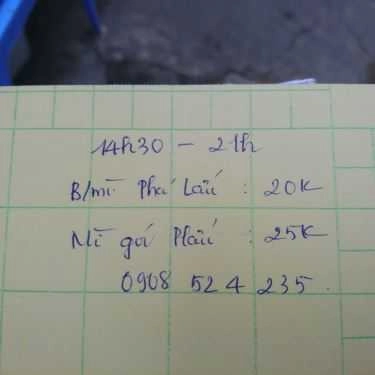 14h30 - 21h
B/mì Phá Lấu : 20K
Mì gói Plấu : 25K
0908 524 235.